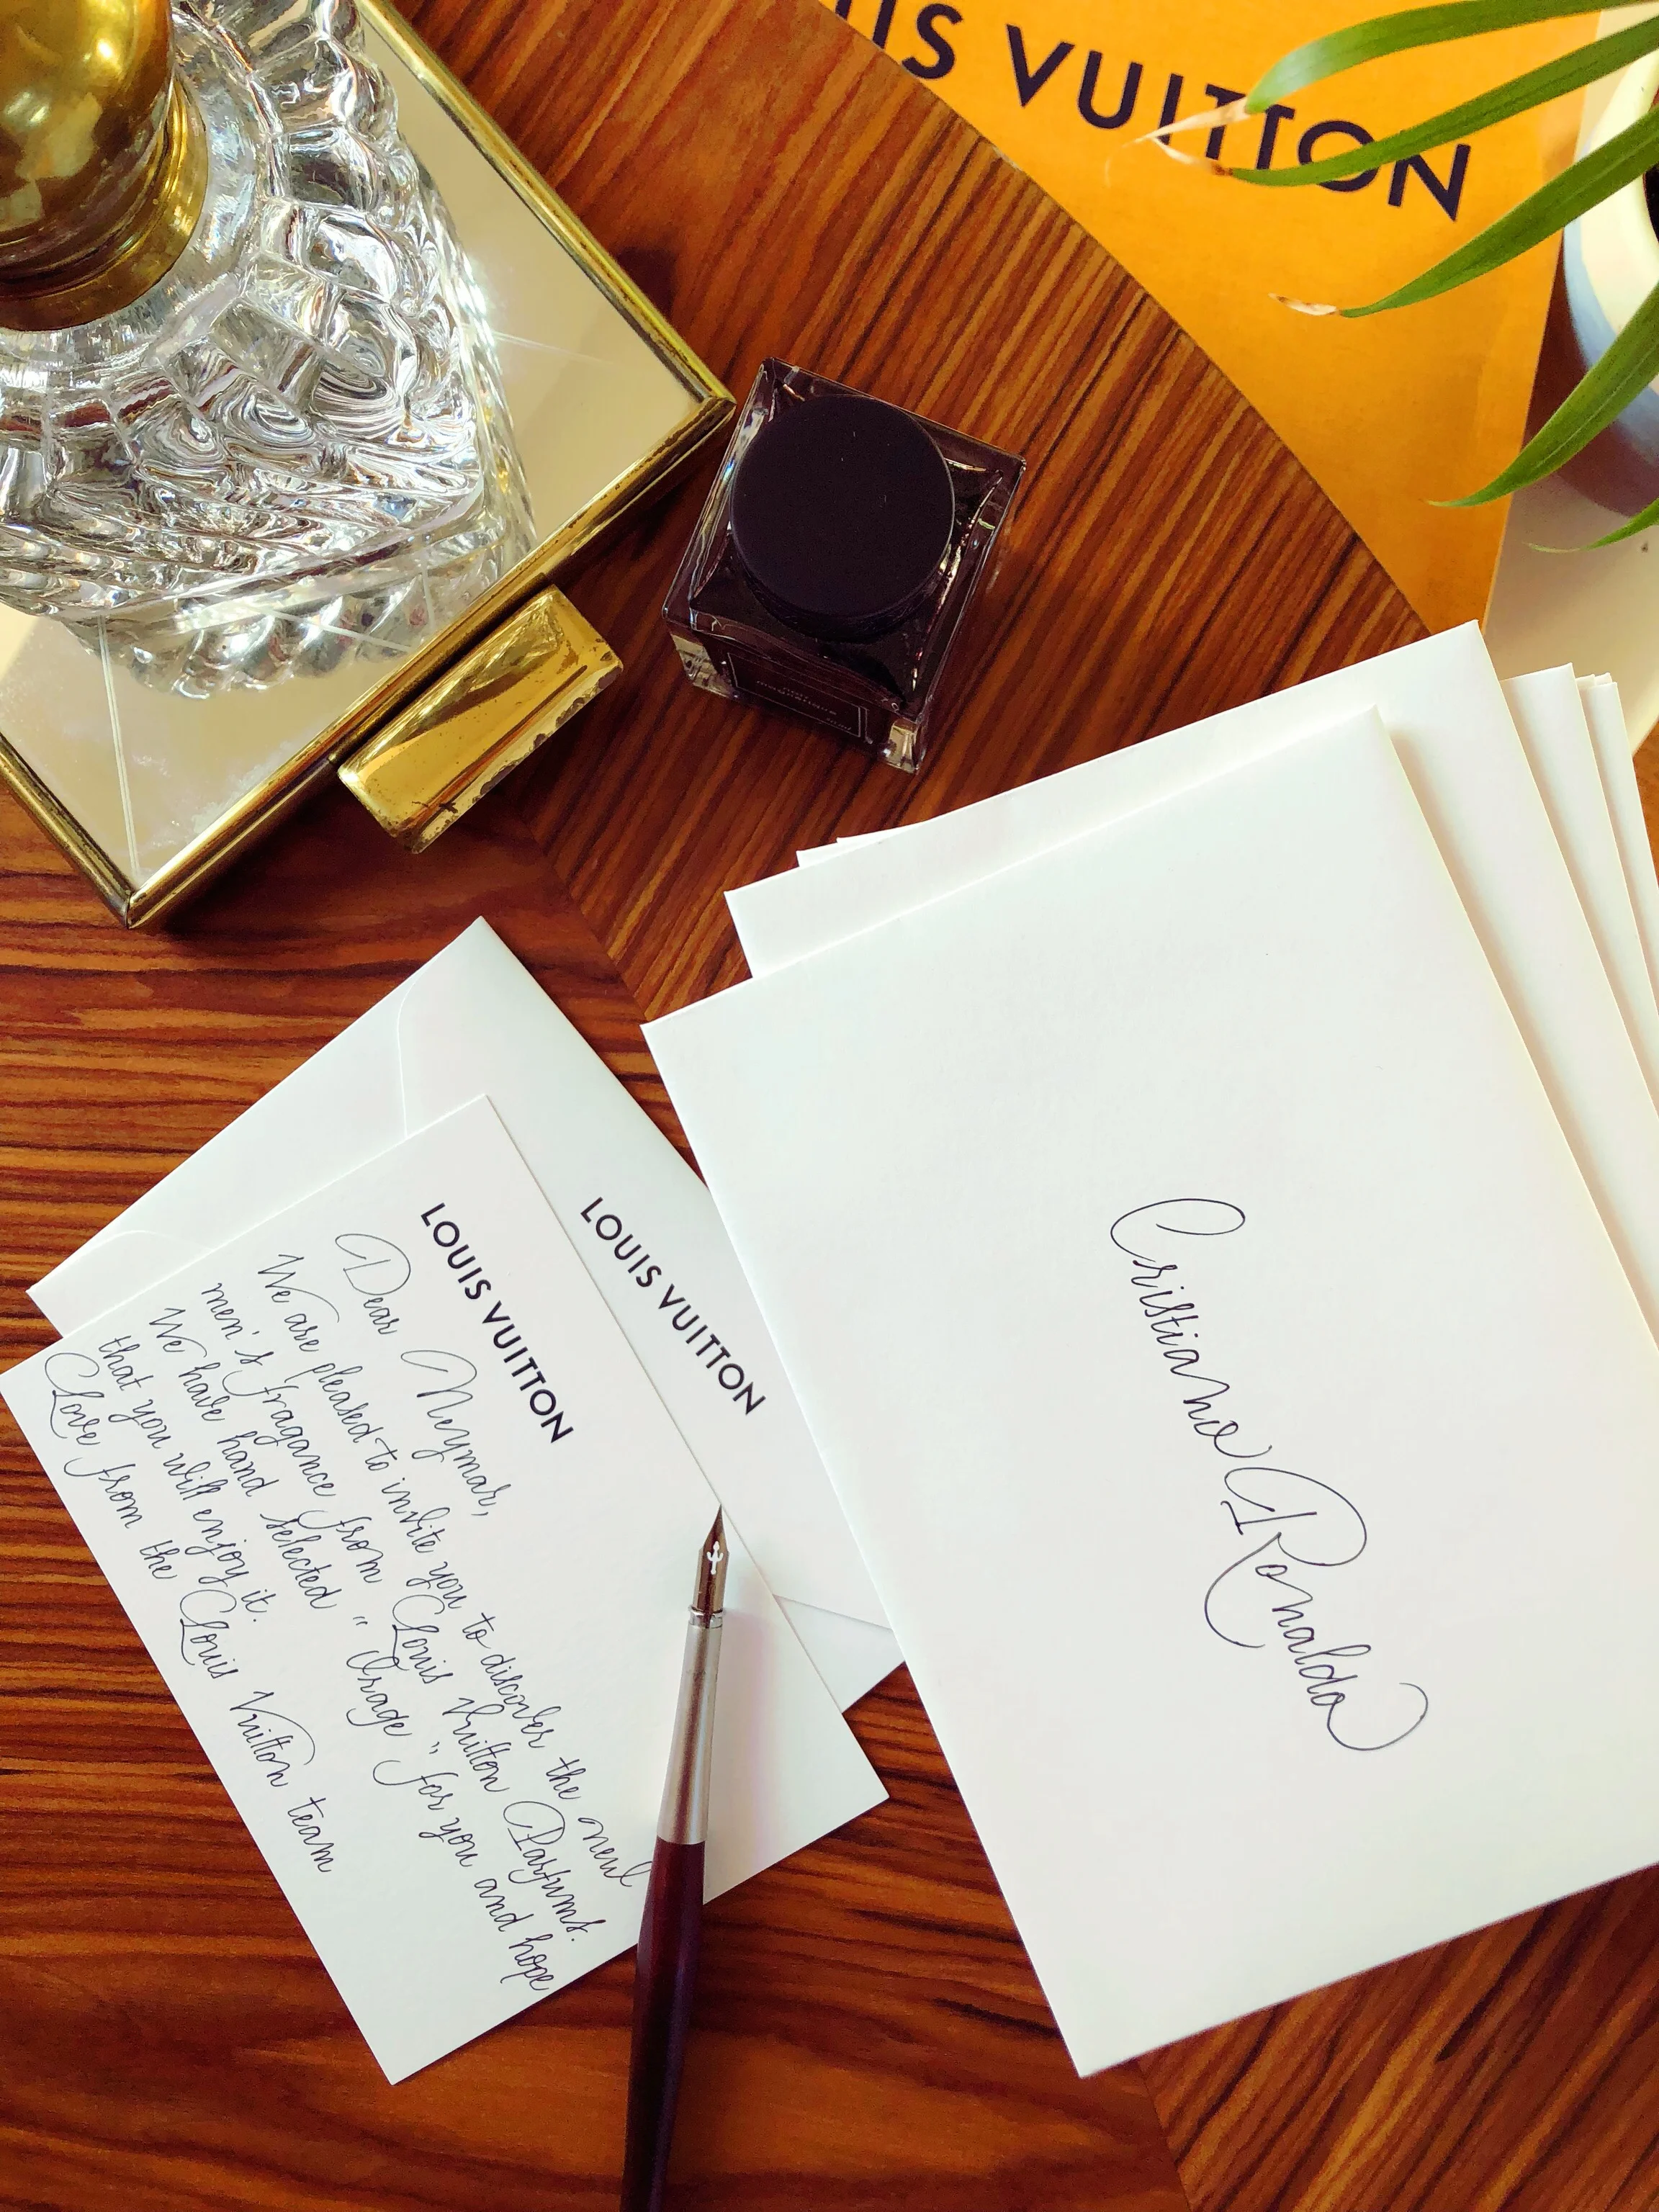 UIS VUITTON
LOUIS VUITTON
LOUIS VUITTON
Dear Neymar,
We are pleased to invite you to discover the new
men's fragance from Louis Vuitton Parfums.
We have hand selected "Orage" for you and hope
that you will enjoy it.
Love from the Louis Vuitton team
Cristiano Ronaldo